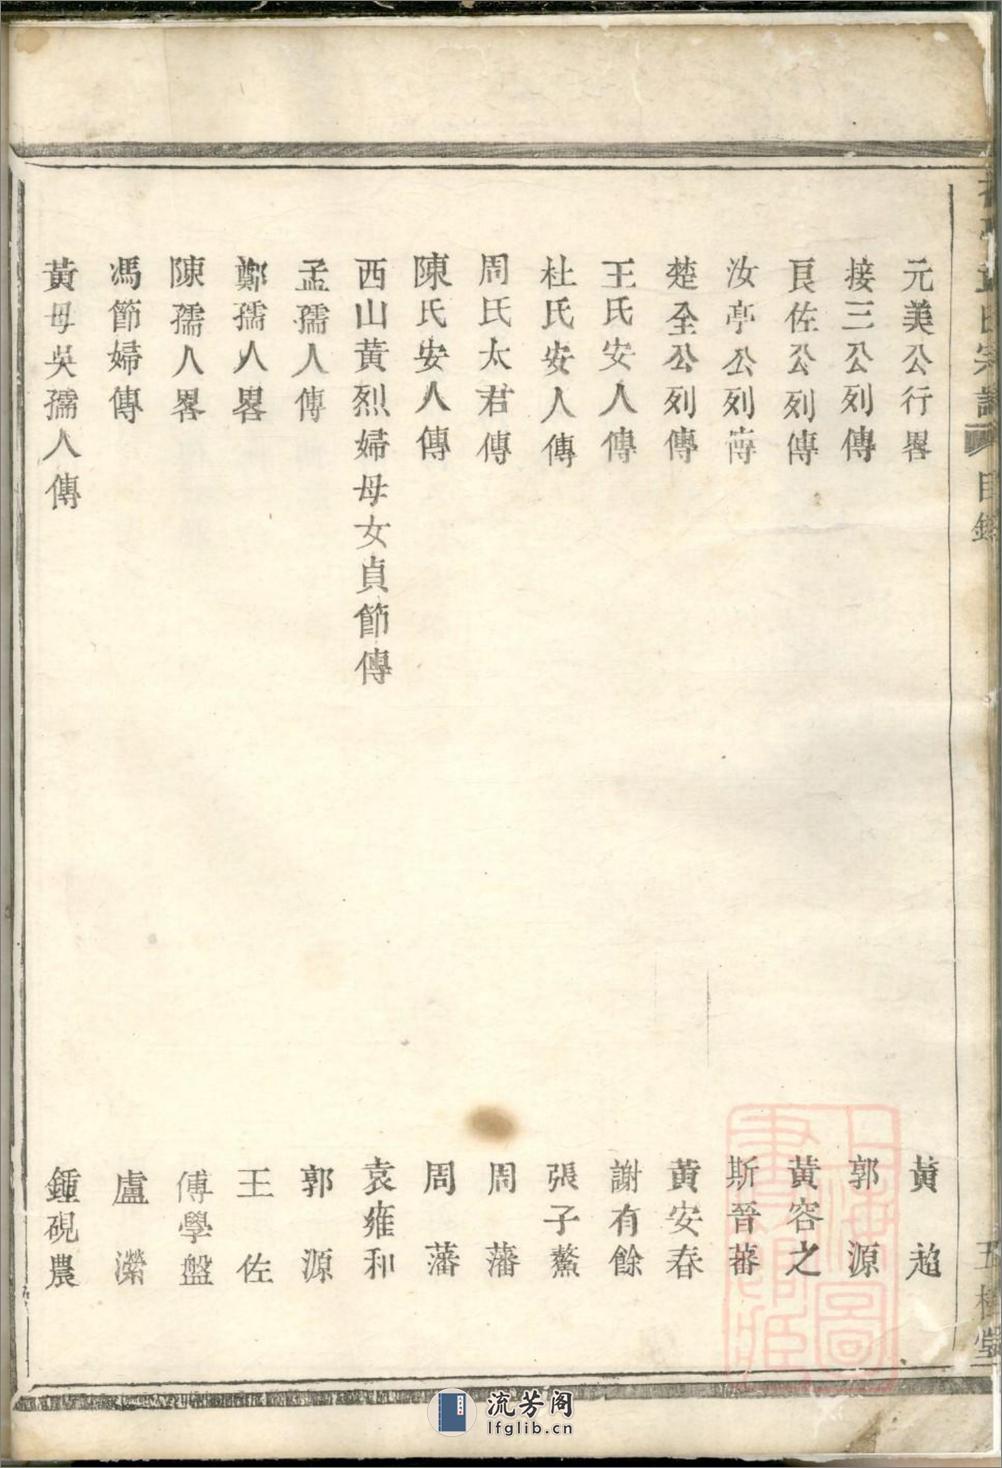 氏宗譜 目錄
元美公行畧 黃超
接三公列傳 郭源
良佐公列傳 黃容之
汝亭公列傳 斯晉蕃
楚全公列傳 黃安春
王氏安人傳 謝有餘
杜氏安人傳 張子鰲
周氏太君傳 周藩
陳氏安人傳 周藩
西山黃烈婦母女貞節傳 袁雍和
孟孺人傳 郭源
鄭孺人畧 王佐
陳孺人畧 傅學盤
馮節婦傳 盧濴
黃母吳孺人傳 鍾硯農
上海圖書館藏
流芳阁
lfglib.cn